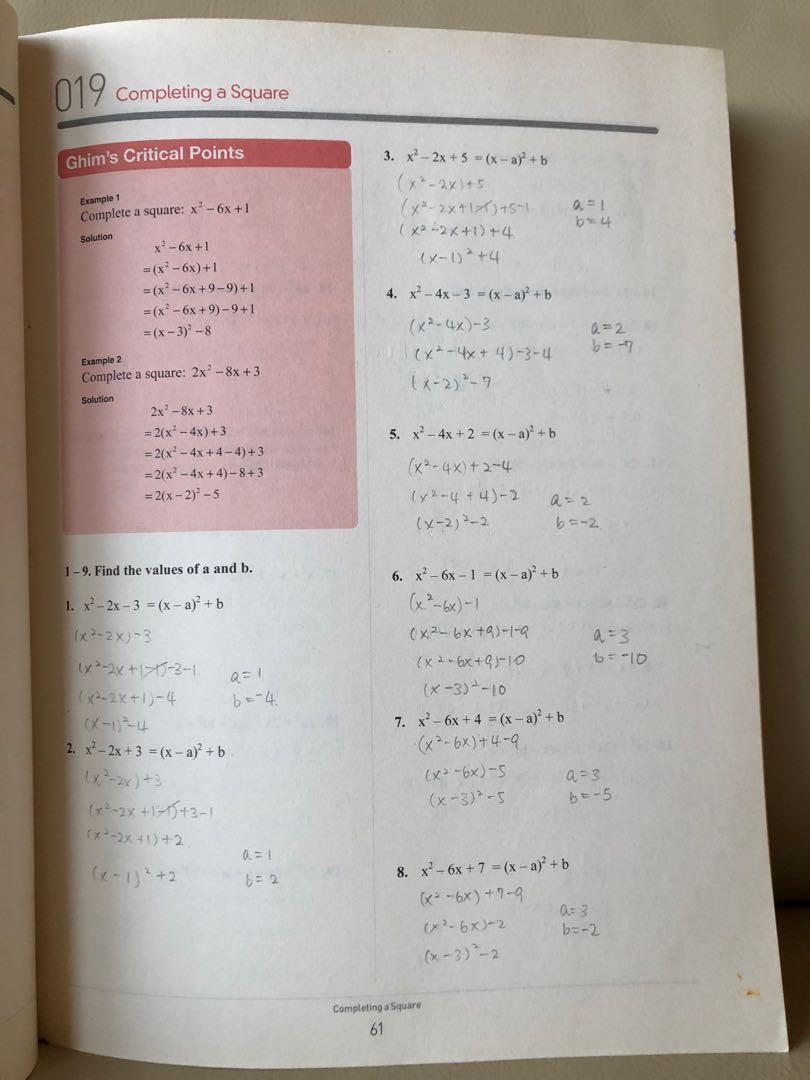 019 Completing a Square
Ghim's Critical Points
Example 1
Complete a square: x² – 6x + 1
Solution
x² – 6x + 1
= (x² – 6x) + 1
= (x² – 6x + 9 – 9) + 1
= (x² – 6x + 9) – 9 + 1
= (x – 3)² – 8
Example 2
Complete a square: 2x² – 8x + 3
Solution
2x² – 8x + 3
= 2(x² – 4x) + 3
= 2(x² – 4x + 4 – 4) + 3
= 2(x² – 4x + 4) – 8 + 3
= 2(x – 2)² – 5
1 – 9. Find the values of a and b.
1. x² – 2x – 3 = (x – a)² + b
(x²-2x)-3
(x²-2x+1-1)-3-1
a=1
(x²-2x+1)-4
b=-4
(x-1)²-4
2. x² – 2x + 3 = (x – a)² + b
(x²-2x)+3
(x²-2x+1-1)+3-1
(x²-2x+1)+2
a=1
(x-1)²+2
b=2
3. x² – 2x + 5 = (x – a)² + b
(x²-2x)+5
(x²-2x+1-1)+5-1
a=1
b=4
(x²-2x+1)+4
(x-1)²+4
4. x² – 4x – 3 = (x – a)² + b
(x²-4x)-3
a=2
b=-7
(x²-4x+4)-3-4
(x-2)²-7
5. x² – 4x + 2 = (x – a)² + b
(x²-4x)+2-4
(x²-4+4)-2
a=2
(x-2)²-2
b=-2
6. x² – 6x – 1 = (x – a)² + b
(x²-6x)-1
(x²-6x+9)-1-9
a=3
(x²-6x+9)-10
b=-10
(x-3)²-10
7. x² – 6x + 4 = (x – a)² + b
(x²-6x)+4-9
(x²-6x)-5
a=3
(x-3)²-5
b=-5
8. x² – 6x + 7 = (x – a)² + b
(x²-6x)+7-9
a=3
(x²-6x)-2
b=-2
(x-3)²-2
Completing a Square
61